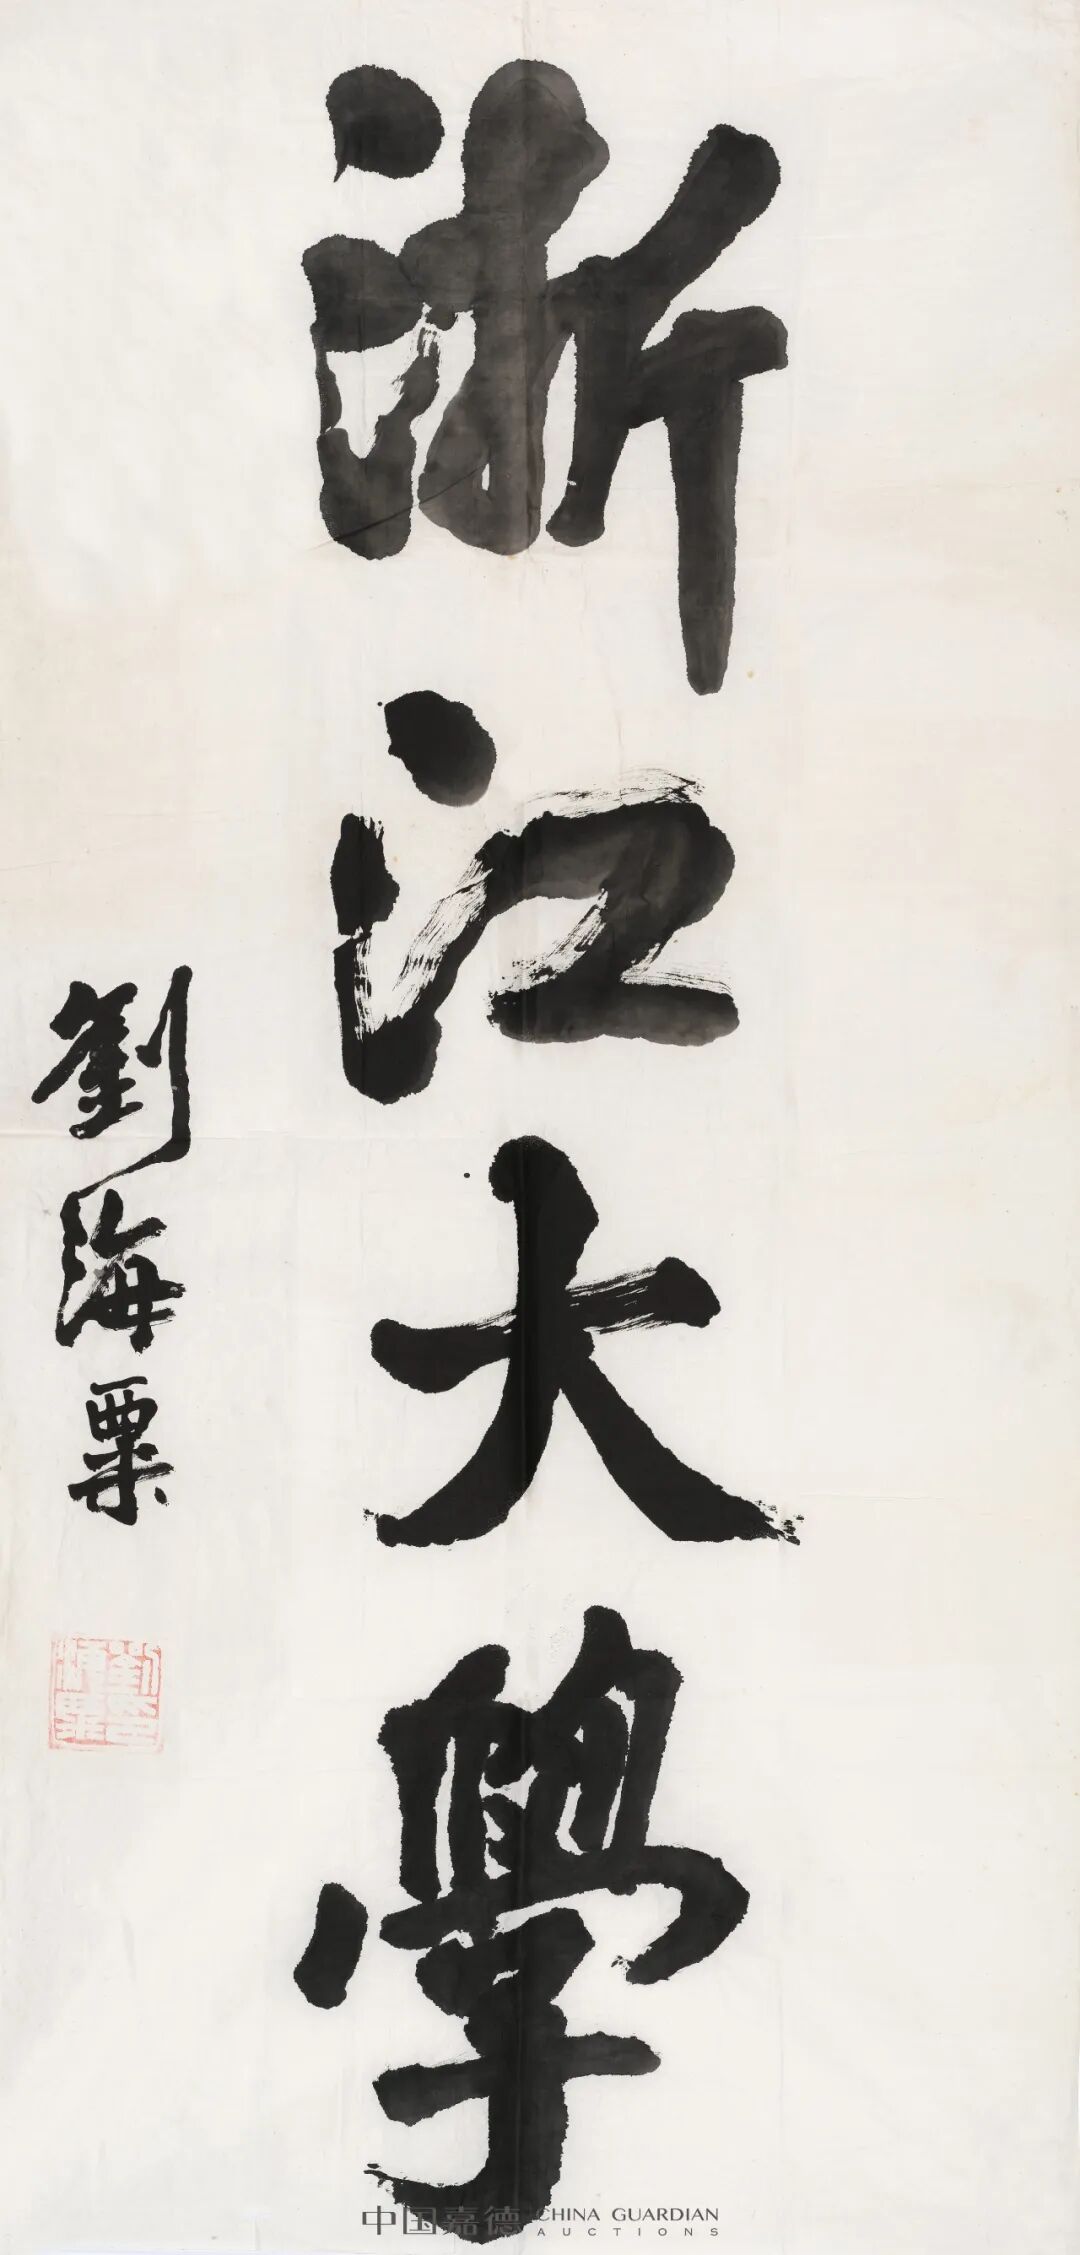 浙江大學
劉海粟
劉海粟印
中国嘉德 CHINA GUARDIAN
AUCTIONS